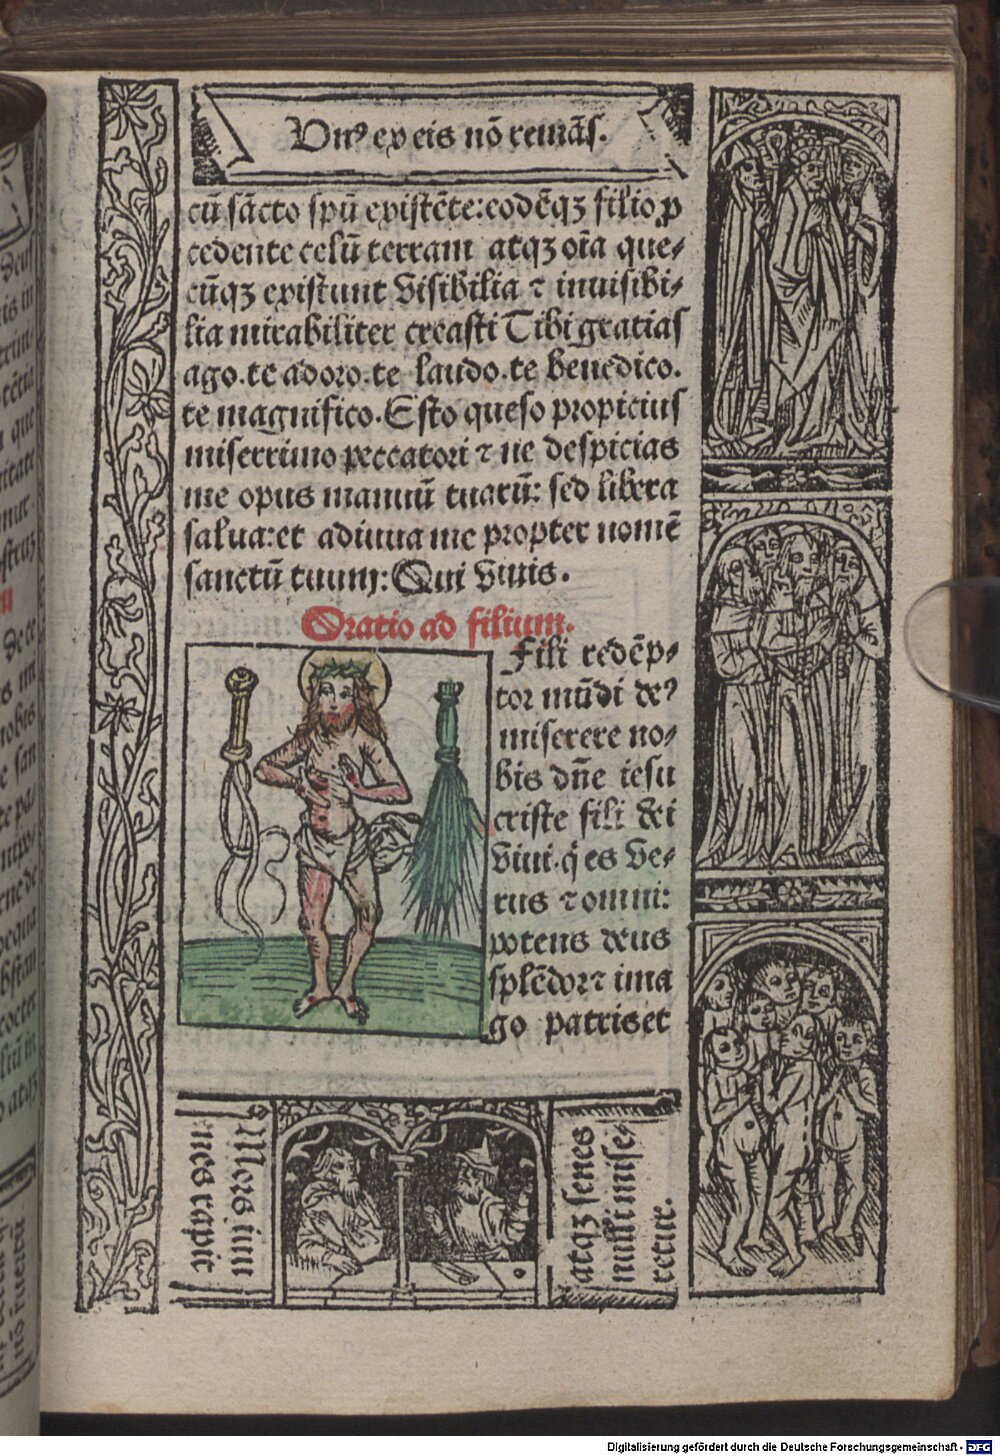 Vn⁹ ex eis nō remās.
cū sācto spū existēte: eodēqȝ filio ꝓ
cedente celū terram atqȝ oīa que⸗
cūqȝ existunt Visibilia ⁊ inuisibi⸗
lia mirabiliter creasti Tibi gratias
ago. te adoro. te laudo. te benedico.
te magnifico. Esto queso propicius
miserrimo peccatori ⁊ ne despicias
me opus manuū tuarū: sed libera
salua: et adiuua me propter nomē
sanctū tuum: Qui Viuis.
Oratio ad filium.
Fili redēp⸗
tor mūdi de⁹
miserere no⸗
bis dn̄e iesu
criste fili dei
Viui. q̇ es Ve⸗
rus ⁊ omni:
potens deus
splēdor ⁊ ima
go patris et
Mors iuu
nes rapit
atqȝ senes
nulli mise⸗
retur.
Digitalisierung gefördert durch die Deutsche Forschungsgemeinschaft - DFG